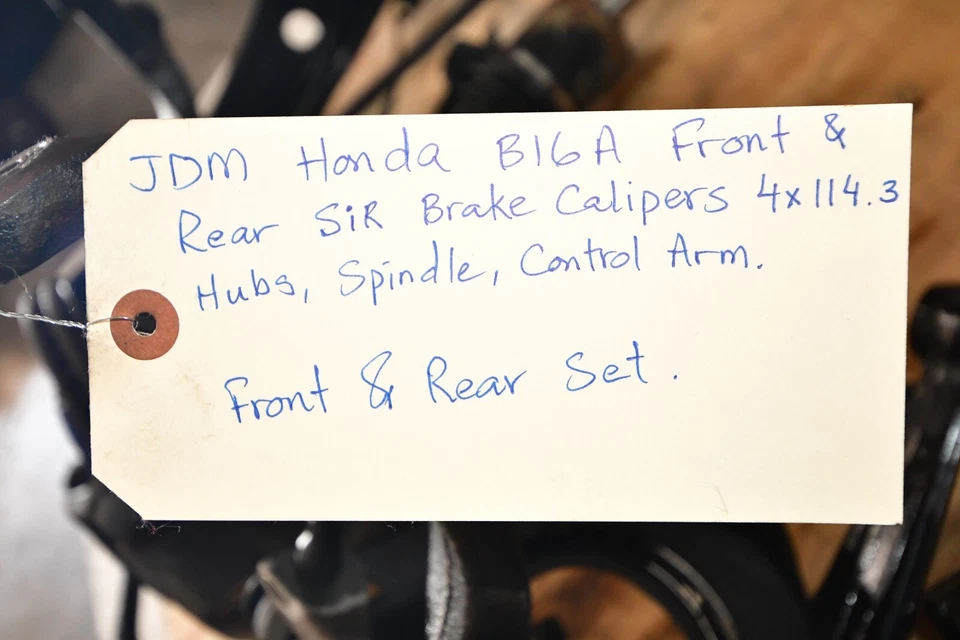 JDM Honda B16A Front &
Rear SiR Brake Calipers 4x114.3
Hubs, Spindle, Control Arm.
Front & Rear Set.